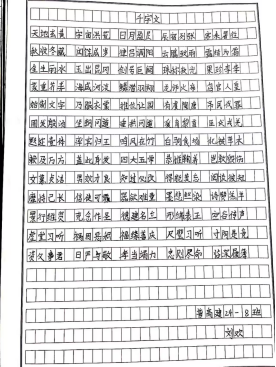 千字文
天地玄黄 宇宙洪荒 日月盈昃 辰宿列张 寒来暑往
秋收冬藏 闰余成岁 律吕调阳 云腾致雨 露结为霜
金生丽水 玉出昆冈 剑号巨阙 珠称夜光 果珍李柰
菜重芥姜 海咸河淡 鳞潜羽翔 龙师火帝 鸟官人皇
始制文字 乃服衣裳 推位让国 有虞陶唐 吊民伐罪
周发殷汤 坐朝问道 垂拱 爱育黎首 臣伏戎羌
率宾归王 鸣凤在竹 白驹食场 化被草木
赖及万方 盖此身发 四大五常 恭惟鞠养 岂敢毁伤
女慕贞洁 男效才良 知过必改 得能莫忘 罔谈彼短
靡恃己长 信使可覆 器欲难量 墨悲丝染 诗赞羔羊
景行维贤 克念作圣 德建名立 形端表正 空谷传声
虚堂习听 祸因恶积 福缘善庆 尺璧 寸阴是竞
资父事君 曰严与敬 孝当竭力 忠则尽命 临深履薄
24-8班
刘欢